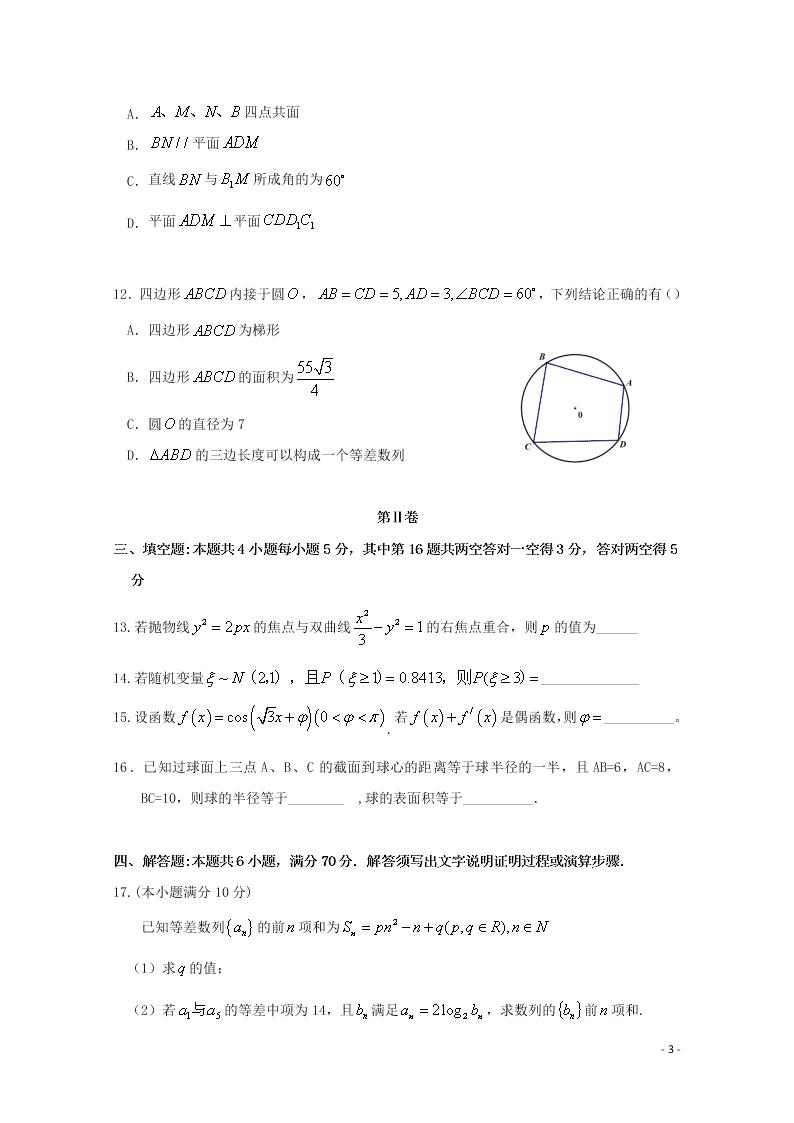 A. A、M、N、B四点共面
B. BN//平面ADM
C. 直线BN与B₁M所成角的为60°
D. 平面ADM⊥平面CDD₁C₁
12. 四边形ABCD内接于圆O, AB=CD=5,AD=3,∠BCD=60°,下列结论正确的有()
A. 四边形ABCD为梯形
B. 四边形ABCD的面积为55√3/4
C. 圆O的直径为7
D. ΔABD的三边长度可以构成一个等差数列
B
A
0
C
D
第Ⅱ卷
三、填空题:本题共4小题每小题5分,其中第16题共两空答对一空得3分,答对两空得5
分
13.若抛物线y²=2px的焦点与双曲线x²/3-y²=1的右焦点重合,则p的值为______
14.若随机变量ξ~N(2,1),且P(ξ≥1)=0.8413,则P(ξ≥3)=______________
15.设函数f(x)=cos(√3x+φ)(0<φ<π).若f(x)+f′(x)是偶函数,则φ=__________。
16.已知过球面上三点A、B、C的截面到球心的距离等于球半径的一半,且AB=6,AC=8,
BC=10,则球的半径等于________ ,球的表面积等于__________.
四、解答题:本题共6小题,满分70分.解答须写出文字说明证明过程或演算步骤.
17.(本小题满分10分)
已知等差数列{aₙ}的前n项和为Sₙ=pn²-n+q(p,q∈R),n∈N
(1)求q的值;
(2)若a₁与a₅的等差中项为14,且bₙ满足aₙ=2log₂bₙ,求数列的{bₙ}前n项和.
- 3 -